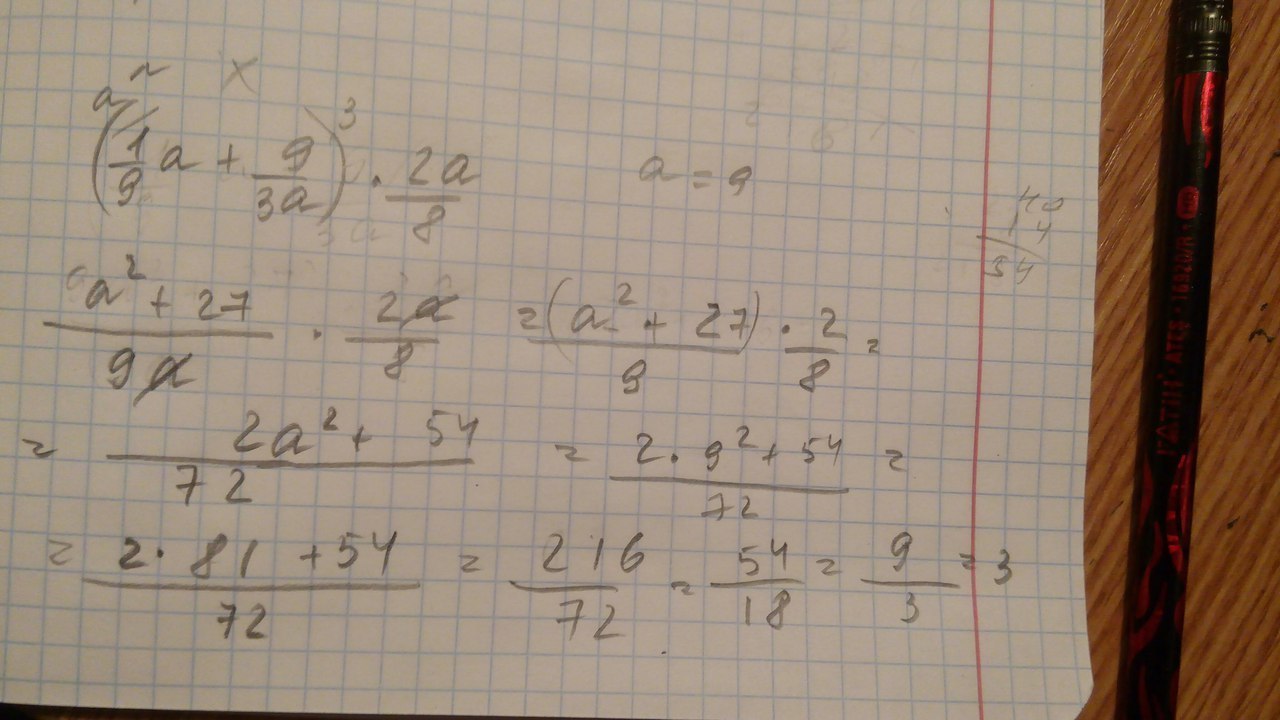 a ~ x
(1/9 a + 9/3a)^3 · 2a/8 a = 9
a^2 + 27 / 9a · 2a/8 = (a^2 + 27)/9 · 2/8 =
= 2a^2 + 54 / 72 = 2·9^2 + 54 / 72 =
= 2·81 + 54 / 72 = 216/72 = 54/18 = 9/3 = 3